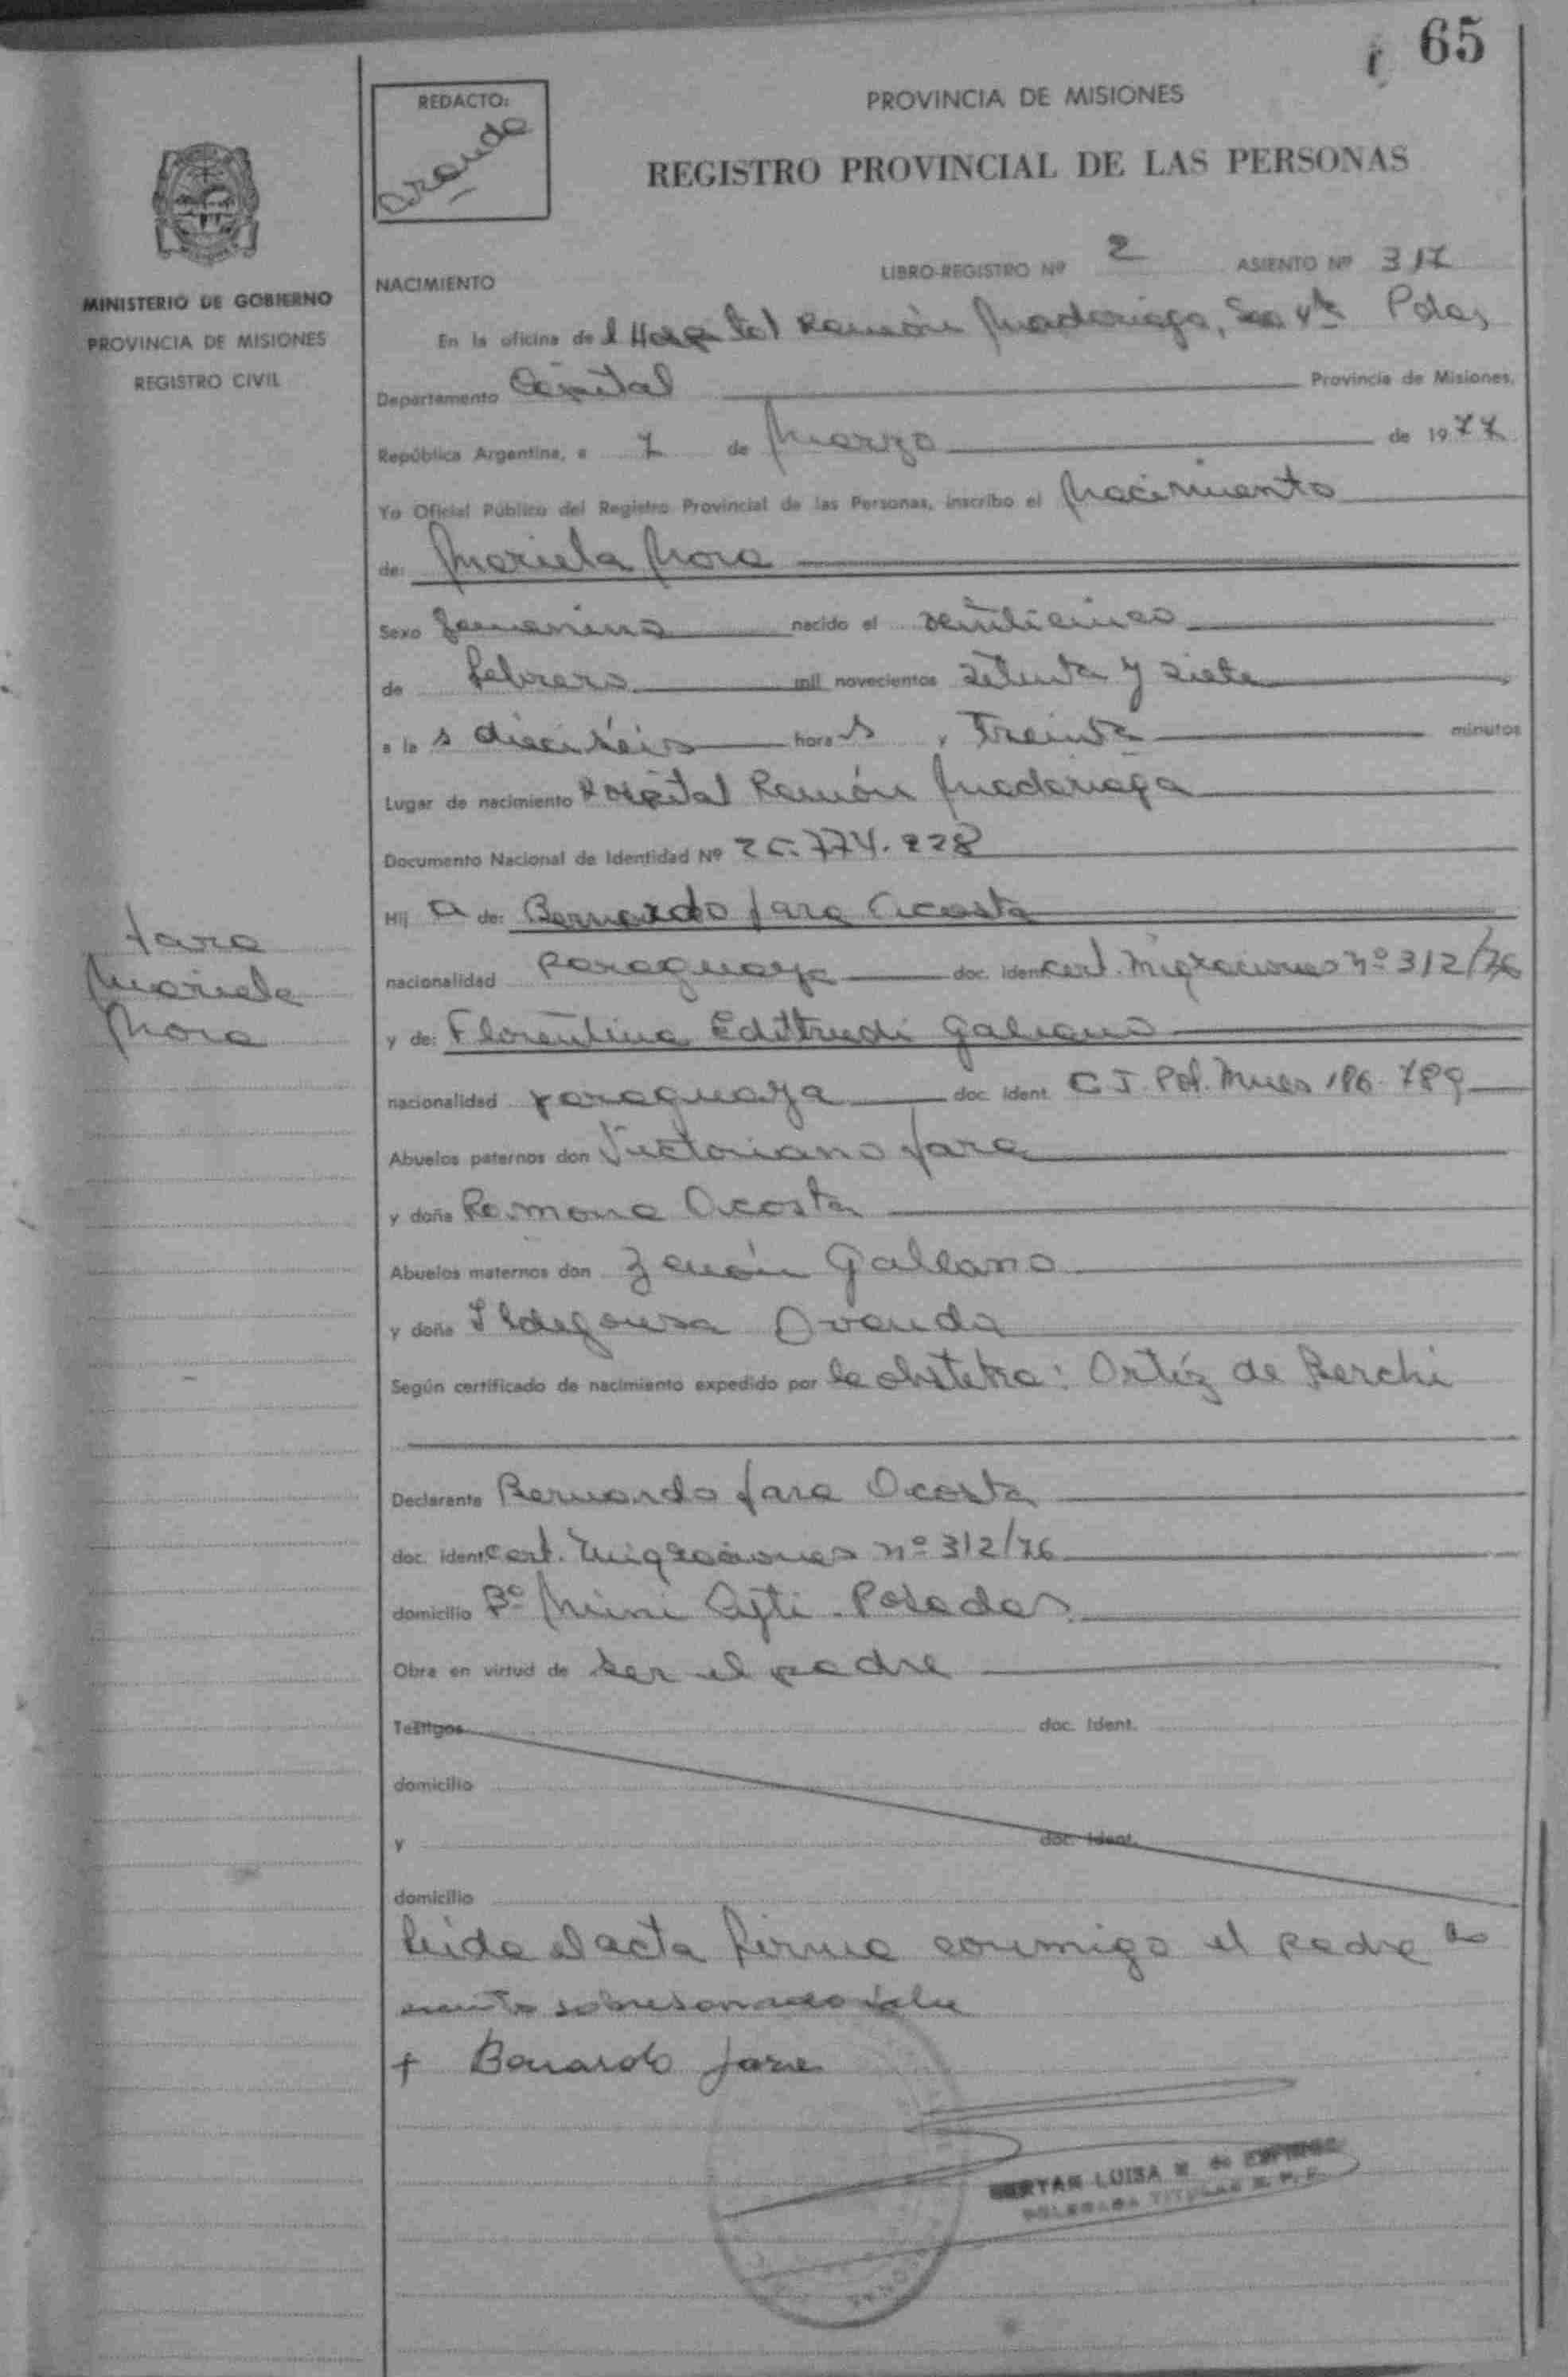 65
REDACTO:
Aranda
PROVINCIA DE MISIONES
REGISTRO PROVINCIAL DE LAS PERSONAS
MINISTERIO DE GOBIERNO
PROVINCIA DE MISIONES
REGISTRO CIVIL
NACIMIENTO
LIBRO-REGISTRO Nº 2 ASIENTO Nº 317
En la oficina del Hospital Ramón Madariaga, Pdas
Departamento Capital Provincia de Misiones,
República Argentina, a 7 de Marzo de 1977
Yo Oficial Público del Registro Provincial de las Personas, inscribo el Nacimiento
de: Mariela Nora
Sexo femenino nacido el veinticinco
de febrero mil novecientos setenta y siete
a las dieciséis horas y treinta minutos
Lugar de nacimiento Hospital Ramón Madariaga
Documento Nacional de Identidad Nº 25.774.228
Hija de: Bernardo Jara Acosta
nacionalidad paraguaya doc. ident. cert. Migraciones nº 312/76
y de: Florentina Edittrudi Galeano
nacionalidad paraguaya doc. ident. C I. Pol. Mnes 186.789
Abuelos paternos don Victoriano Jara
y doña Ramona Acosta
Abuelos maternos don Zenón Galeano
y doña Ildefonsa Ovenda
Según certificado de nacimiento expedido por la obstetra: Ortíz de Berchi
Jara
Mariela
Nora
Declarante Bernardo Jara Acosta
doc. ident. cert. Migraciones nº 312/76
domicilio Bº Miní Cyti - Posadas
Obra en virtud de ser el padre
Testigos doc. Ident.
domicilio
y doc. Ident.
domicilio
Leida el acta firma conmigo el padre lo
escrito sobreborrado vale
+ Bernardo Jara
LUISA M. de
DELEGADA TITULAR R. P. P.